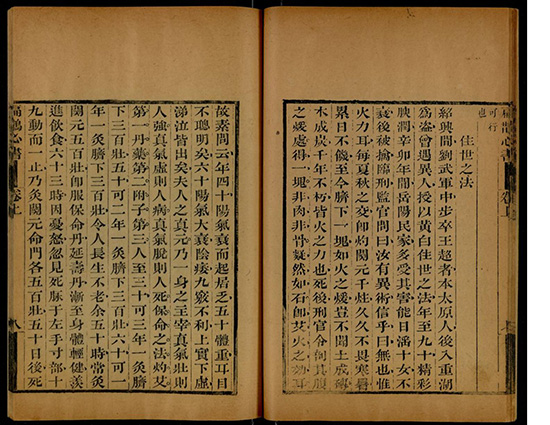 可行
也
住世之法
紹興間劉武軍中步卒王超者本太原人後入重湖
為盜曾遇異人授以黃白住世之法年至九十精彩
腴潤辛卯年間岳陽民家多受其害能日淫十女不
衰後被擒臨刑監官問曰汝有異術信乎曰無也惟
火力耳每夏秋之交卽灼關元千炷久久不畏寒暑
累日不饑至今臍下一塊如火之煖豈不聞土成磚
木成炭千年不朽皆火之力也死後刑官令剖其腹
之煖處得一塊非肉非骨凝然如石卽艾火之効耳
故素問云年四十陽氣衰而起居乏五十體重耳目
不聰明矣六十陽氣大衰陰痿九竅不利上實下虛
涕泣皆出矣夫人之真元乃一身之主宰真氣壯則
人強真氣虛則人病真氣脫則人死保命之法灼艾
第一丹藥第二附子第三人至三十可三年一灸臍
下三百壯五十可二年一灸臍下三百壯六十可一
年一灸臍下三百壯令人長生不老余五十時常灸
關元五百壯卽服保命丹延壽丹漸至身體輕健羨
進飲食六十三時因憂怒忽見死脉于左手寸部十
九動而一止乃灸關元命門各五百壯五十日後死
扁鵲心書 卷上 八